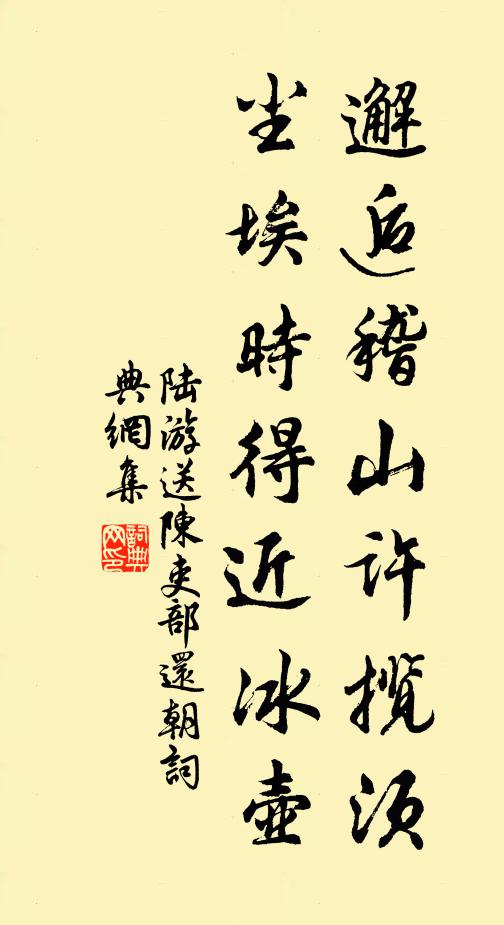 邂逅稽山許攬須
尘埃時得近冰壺
陆游送陳吏部還朝詞
典網集
詞典
网印